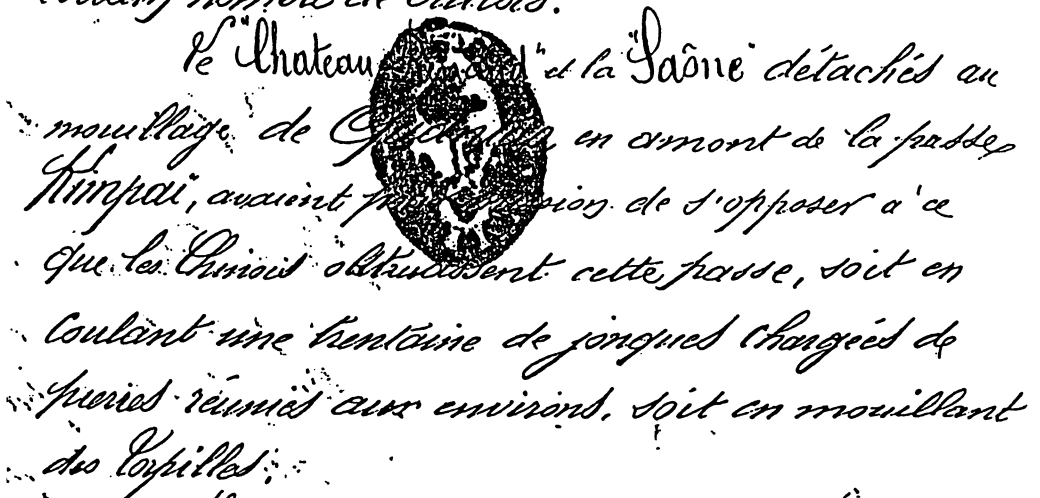 nombre de
Le "Chateau et la "Saône" détachés au
mouillage de en amont de la passe
Kimpaï", avaient de s'opposer à ce
que les Chinois obstruassent cette passe, soit en
coulant une trentaine de jonques chargées de
pierres réunies aux environs, soit en mouillant
des torpilles.